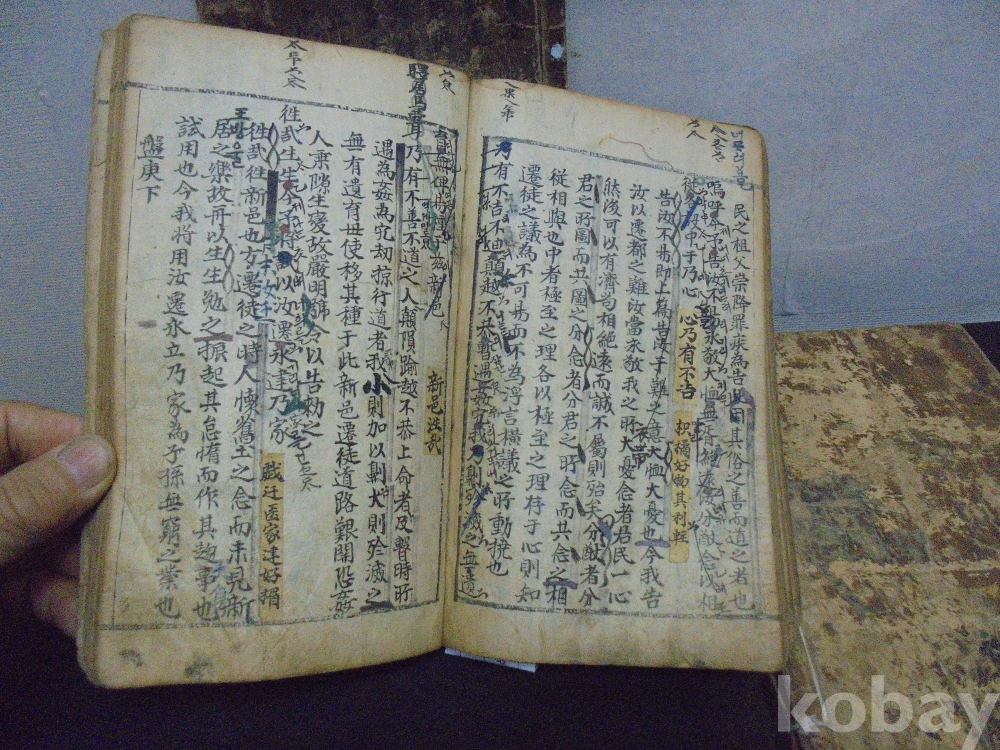 民之祖父崇降罪疾為告因其俗之善而道之者也
嗚呼今予告汝不易永敬大恤無胥絕遠汝分猷念以相
從各設中于乃心
心乃有不吉
告汝不易即上篇告汝于難之意大恤大憂也今我告
汝以遷都之難汝當永敬我之所大憂念者君民一心
然後可以有濟苟相絕遠而誠不屬則殆矣分猷者分
君之所圖而共圖之分念者分君之所念而共念之相
從相與也中者極至之理各以極至之理存于心則知
遷徙之議為不可易而不為浮言橫議之所動搖也
乃有不吉不迪顛越不恭暫遇姦宄我乃劓殄滅之無遺
育無俾易種于玆新邑
乃有不善不道之人顛隕踰越不恭上命者及暫時所
遇為姦為宄劫掠行道者我小則加以劓大則殄滅之
無有遺育毋使移其種于此新邑遷徙道路艱關恐姦
人乘隙生變故嚴明號令以告勑之
往哉生生今予將試以汝遷永建乃家
往哉往新邑也方遷徙之時人懷舊土之念而未見新
居之樂故再以生生勉之振起其怠惰而作其趨事也
試用也今我將用汝遷永立乃家為子孫無窮之業也
盤庚下
kobay